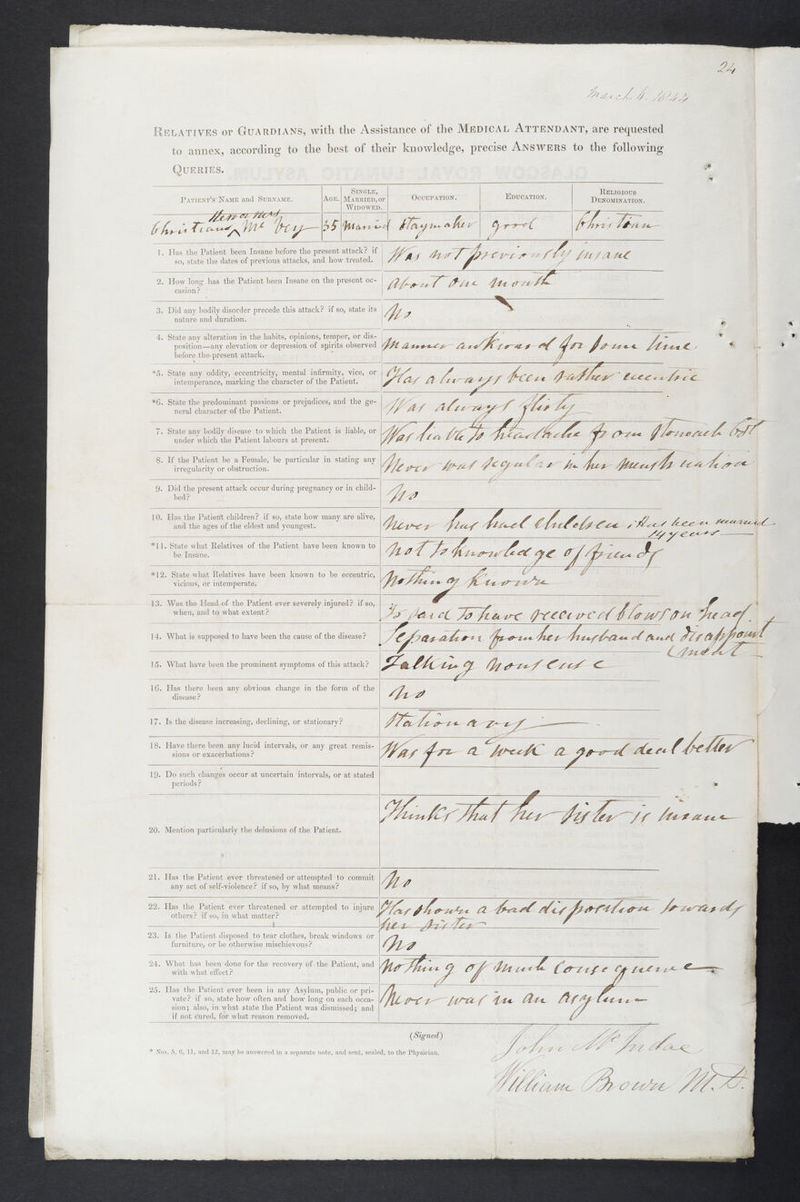 24
March 4. 1844
RELATIVES or GUARDIANS, with the Assistance of the MEDICAL ATTENDANT, are requested
to annex, according to the best of their knowledge, precise ANSWERS to the following
QUERIES.
PATIENT'S NAME and SURNAME.
AGE.
SINGLE, MARRIED, or WIDOWED.
OCCUPATION.
EDUCATION.
RELIGIOUS DENOMINATION.
Mc Vey
35
Married
Staymaker
good
Christian
1. Has the Patient been Insane before the present attack? if
so, state the dates of previous attacks, and how treated.
Was not previously insane
2. How long has the Patient been Insane on the present oc-
casion?
About one month
3. Did any bodily disorder precede this attack? if so, state its
nature and duration.
No
4. State any alteration in the habits, opinions, temper, or dis-
position—any elevation or depression of spirits observed
before the present attack.
Manner awkward for some time
*5. State any oddity, eccentricity, mental infirmity, vice, or
intemperance, marking the character of the Patient.
Has always been rather eccentric
*6. State the predominant passions or prejudices, and the ge-
neral character of the Patient.
Was always flighty
7. State any bodily disease to which the Patient is liable, or
under which the Patient labours at present.
Was liable to headache from Stomach
8. If the Patient be a Female, be particular in stating any
irregularity or obstruction.
Never was regular in her menstruation
9. Did the present attack occur during pregnancy or in child-
bed?
No
10. Has the Patient children? if so, state how many are alive,
and the ages of the eldest and youngest.
Never has had children; Has been married
14 years
*11. State what Relatives of the Patient have been known to
be Insane.
Not to knowledge of friends
*12. State what Relatives have been known to be eccentric,
vicious, or intemperate.
Nothing known
13. Was the Head of the Patient ever severely injured? if so,
when, and to what extent?
Is said to have received blows on head.
14. What is supposed to have been the cause of the disease?
Separation from her husband and disappoint
(ment
15. What have been the prominent symptoms of this attack?
Talking nonsense
16. Has there been any obvious change in the form of the
disease?
No
17. Is the disease increasing, declining, or stationary?
Stationary
18. Have there been any lucid intervals, or any great remis-
sions or exacerbations?
Was for a week a good deal better
19. Do such changes occur at uncertain intervals, or at stated
periods?
20. Mention particularly the delusions of the Patient.
Thinks that her sister is insane
21. Has the Patient ever threatened or attempted to commit
any act of self-violence? if so, by what means?
No
22. Has the Patient ever threatened or attempted to injure
others? if so, in what matter?
Has shown a bad disposition towards
her sister
23. Is the Patient disposed to tear clothes, break windows or
furniture, or be otherwise mischievous?
No
24. What has been done for the recovery of the Patient, and
with what effect?
Nothing of much consequence
25. Has the Patient ever been in any Asylum, public or pri-
vate? if so, state how often and how long on each occa-
sion; also, in what state the Patient was dismissed; and
if not cured, for what reason removed.
Never was in an asylum
(Signed)
* Nos. 5, 6, 11, and 12, may be answered in a separate note, and sent, sealed, to the Physician.
John Mc
William Brown M.D.